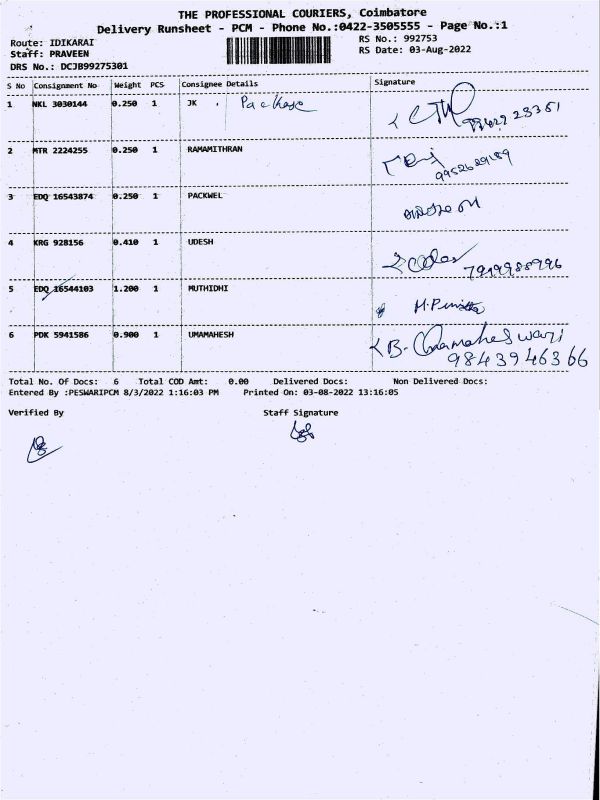 THE PROFESSIONAL COURIERS, Coimbatore
Delivery Runsheet - PCM - Phone No.:0422-3505555 - Page No.:1
Route: IDIKARAI RS No.: 992753
Staff: PRAVEEN RS Date: 03-Aug-2022
DRS No.: DCJB99275301
S No Consignment No Weight PCS Consignee Details Signature
1 NKL 3030144 0.250 1 JK . Package
2 MTR 2224255 0.250 1 RAMAMITHRAN
9952689189
3 EDQ 16543874 0.250 1 PACKWEL
4 KRG 928156 0.410 1 UDESH
7919988996
5 EDQ 16544103 1.200 1 MUTHIDHI
6 PDK 5941586 0.900 1 UMAMAHESH B. Umamaheswari
9843946366
Total No. Of Docs: 6 Total COD Amt: 0.00 Delivered Docs: Non Delivered Docs:
Entered By :PESWARIPCM 8/3/2022 1:16:03 PM Printed On: 03-08-2022 13:16:05
Verified By Staff Signature